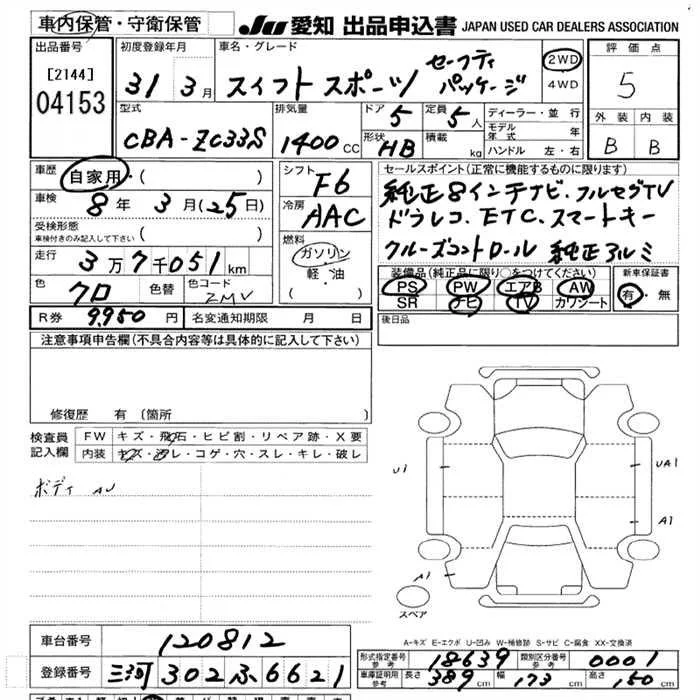 車内保管・守衛保管
JU 愛知 出品申込書 JAPAN USED CAR DEALERS ASSOCIATION
出品番号 [2144] 04153
初度登録年月 31 3月
車名・グレード スイフトスポーツ セーフティパッケージ
2WD・4WD
評価点 5
型式 CBA-ZC33S
排気量 1400CC
ドア 5 定員 5人
形状 HB 積載 kg
ディーラー・並行
モデル年式 年
ハンドル 左・右
外装 内装
B B
車歴 自家用・( )
車検 8年 3月(25日)
受検形態 車検付きのみ記入して下さい ( )
走行 3万7千051km
色 クロ 色替 色コード ZMV
シフト F6
冷房 AAC
燃料 ガソリン・軽・油 ( )
セールスポイント(正常に機能するものに限ります)
純正8インチナビ・フルセグTV
ドラレコ・ETC・スマートキー
クルーズコントロール 純正アルミ
装備品(純正品に限り○をつけてください)
PS PW エアB AW
SR ナビ TV カワシート
新車保証書 有・無
R券 9,950円 名変通知期限 月 日
後日品
注意事項申告欄(不具合内容等は具体的に記入して下さい)
修復歴 有 [箇所 ]
検査員記入欄
FW キズ・飛石・ヒビ割・リペア跡・X要
内装 キズ・汚レ・コゲ・穴・スレ・キレ・破レ
ボディ AU
U1 UA1
A1
A1
スペア
A-キズ E-エクボ U-凹み W-補修跡 S-サビ C-腐食 XX-交換済
車台番号 120812
登録番号 三河 302 ふ 6621
形式指定番号 参考 18639 類別区分番号 参考 0001
車庫証明用 参考 長さ 389cm 幅 173cm 高さ 150cm